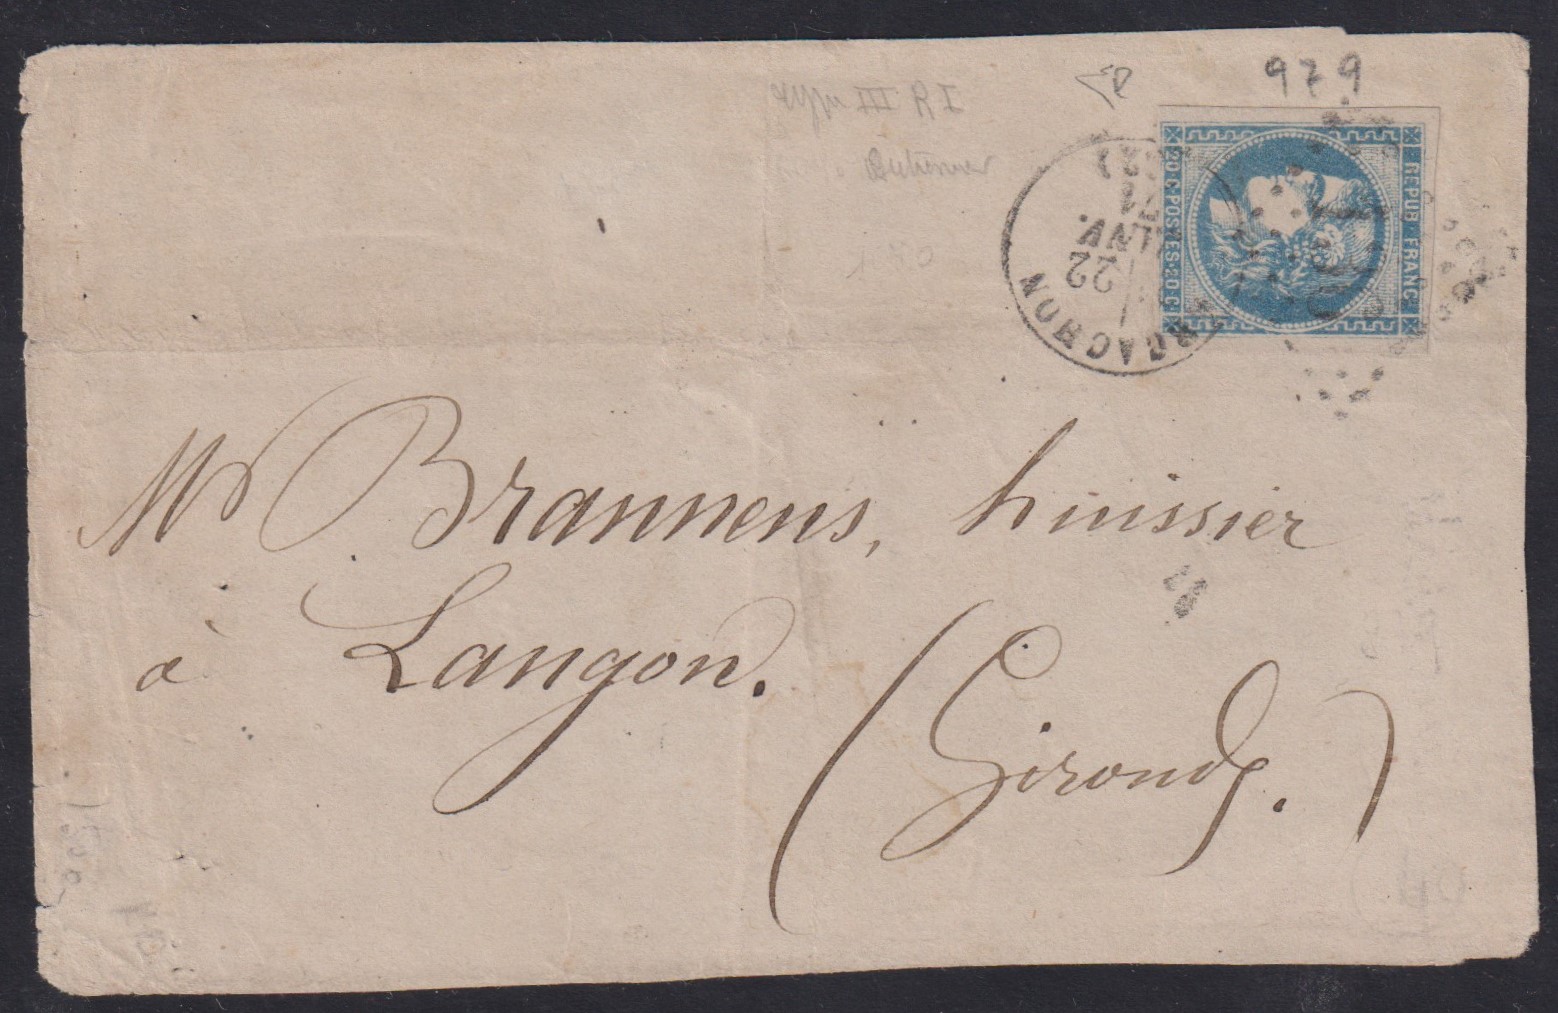 979
Type III R I
REPUB FRANC
20 C · POSTES · 20 C
ARCACHON
22
JANV.
71
(32)
Mr Brannens, huissier
à Langon.
(Gironde.)